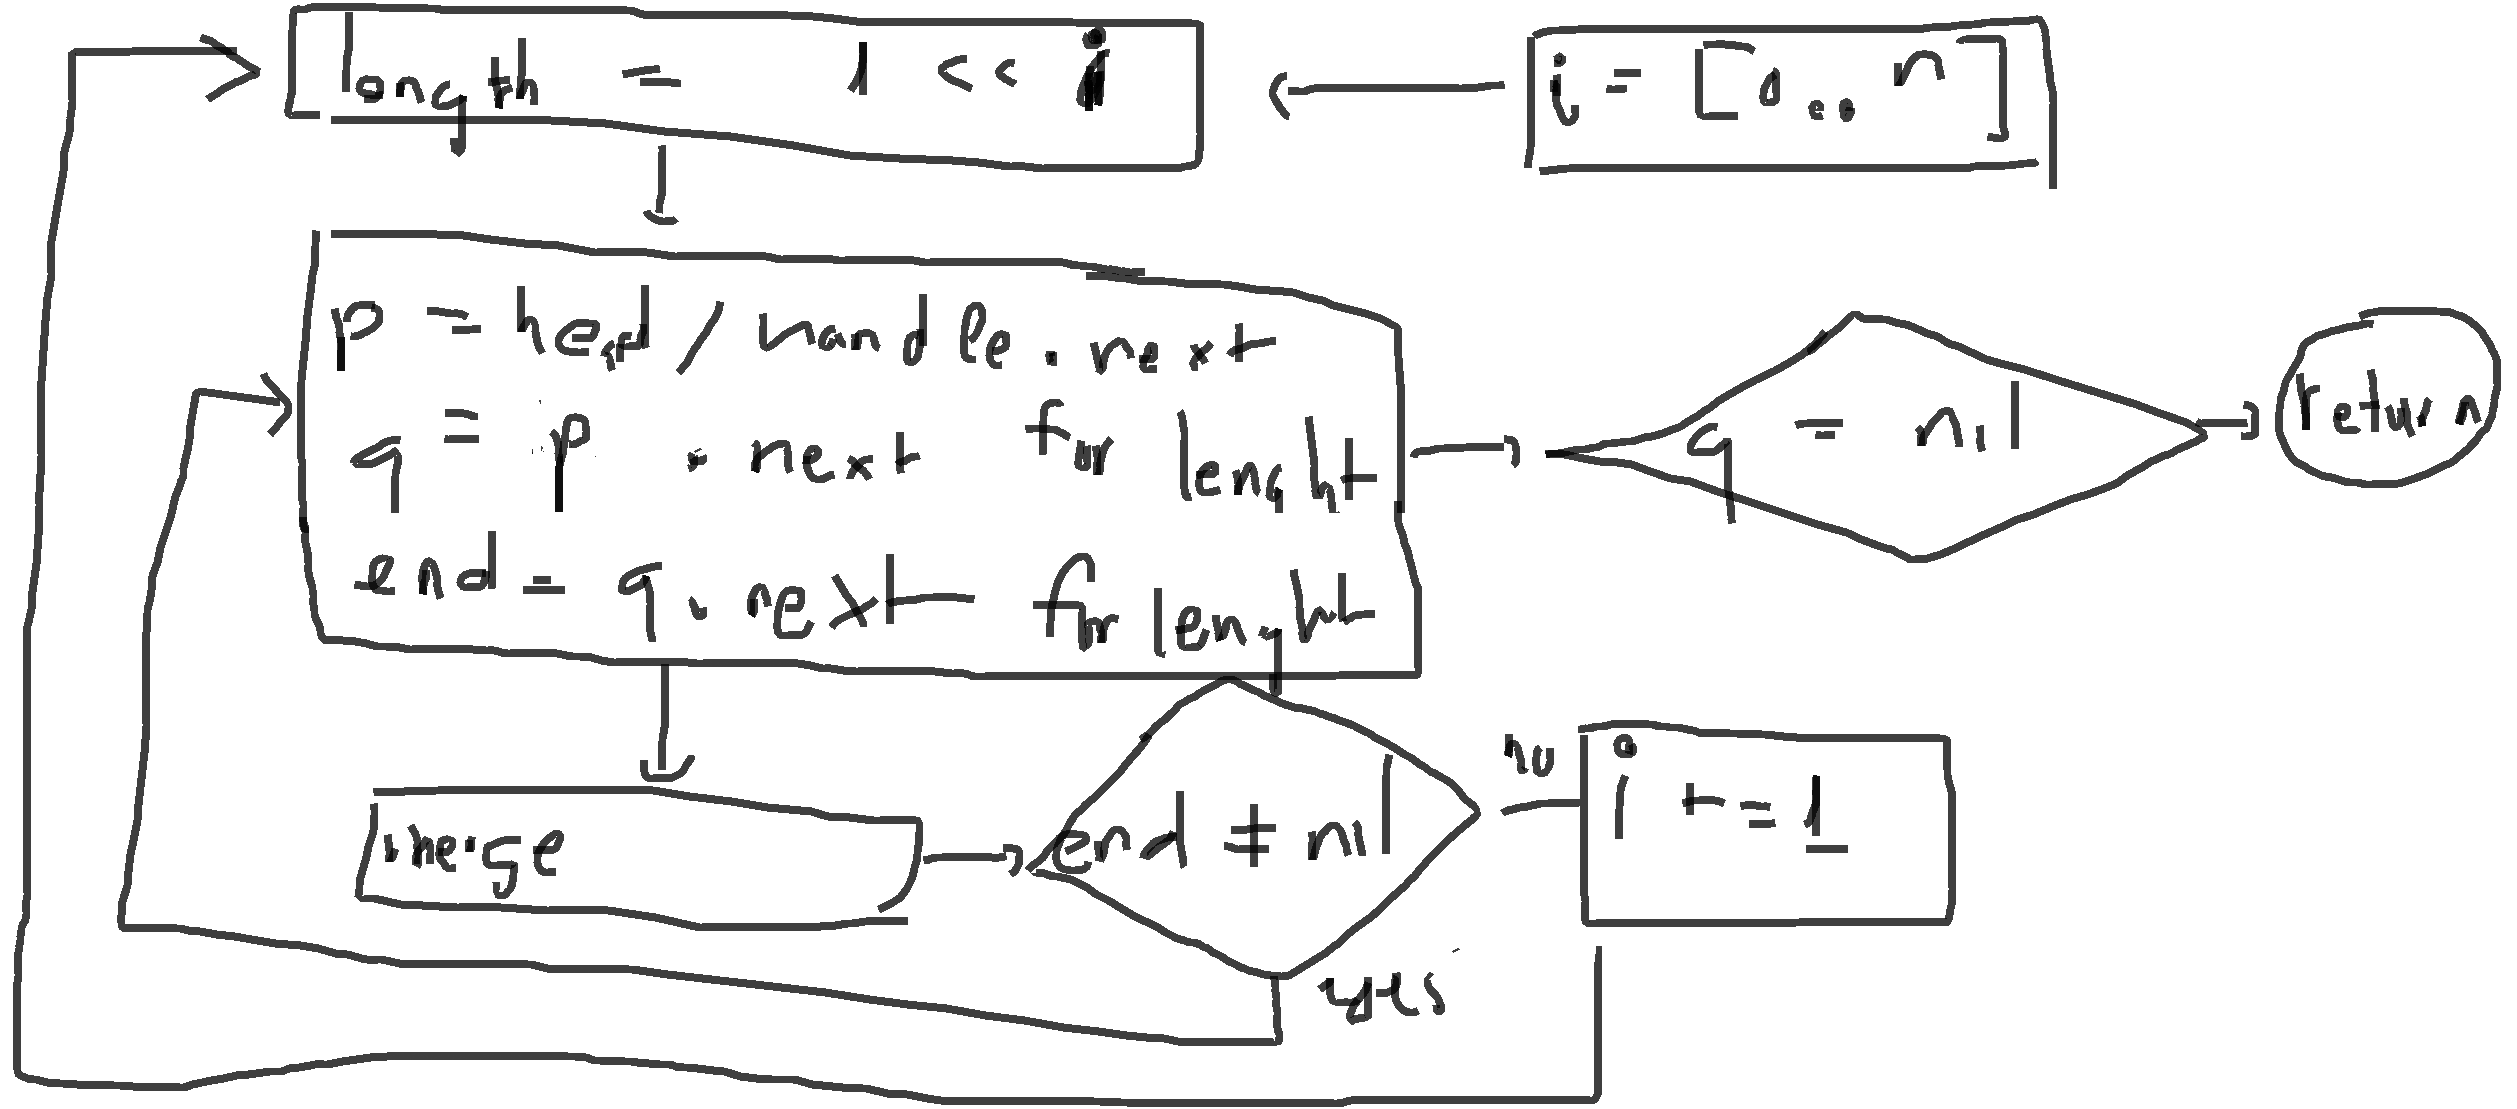 length = 1 << i
i = [0.. n]
p = head/handle.next
q = p.next for lenght
end = q.next for lenght
q = nil
return
merge
end ≠ nil
no
i +=1
yes